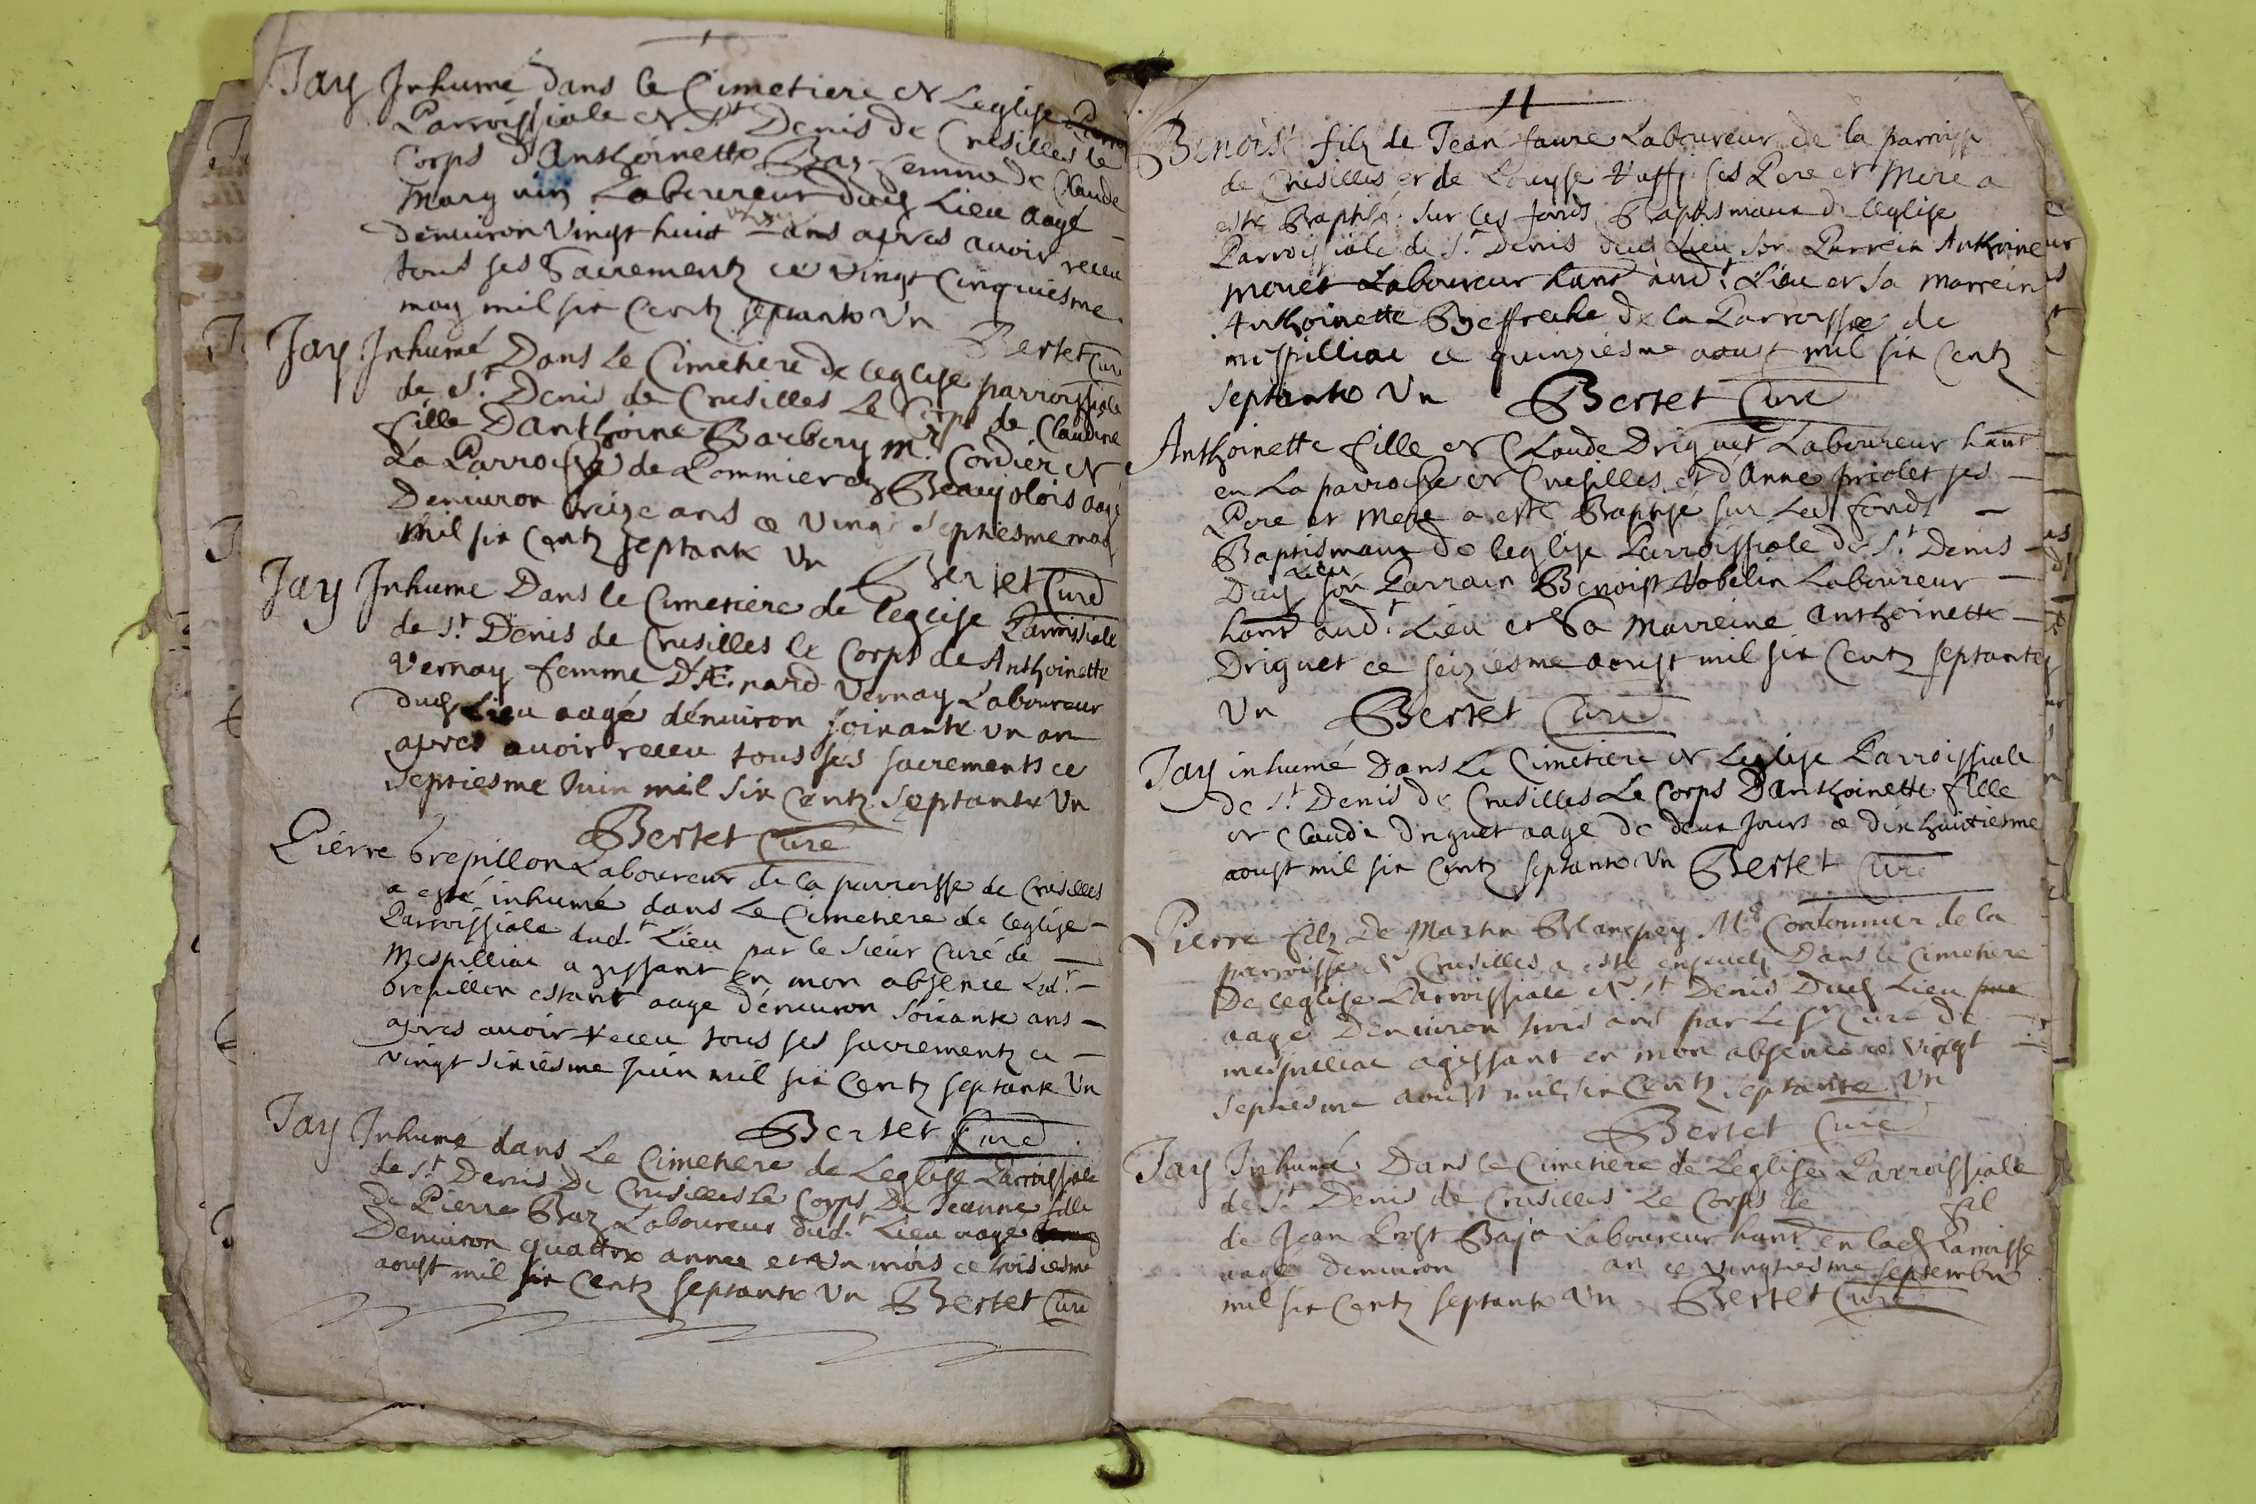 Jay Inhumé dans le Cimetiere de Leglise
Parroissiale de St Denis de Crusilles le
Corps d'Anthoinette Baz femme de Claude
Laboureur dud Lieu aagé
denuiron Vingt huit ans apres auoir receu
tous ses Sacrementz ce Vingt Cinquiesme
may mil six Centz septante Vn
Bertet Curé
Jay Inhumé Dans Le Cimetiere de leglise parroissiale
de St Denis de Crusilles Le Corps de Claudine
fille Danthoine Barbery Mr Cordier de
La Parroisse de Pommier en Beaujolois aagé
Denuiron treize ans ce Vingt septiesme may
Mil six Centz septante Vn
Bertet Curé
Jay Inhumé Dans le Cimetiere de leglise Parroissiale
de St Denis de Crusilles le Corps de Anthoinette
Vernay femme Vernay Laboureur
dud Lieu aagé dénuiron soixante vn an
apres auoir receu tous ses sacrements ce
septiesme Juin mil six Centz septante Vn
Bertet Curé
Pierre brepillon Laboureur de la parroisse de Crusilles
a esté inhumé dans Le Cimetiere de leglise
Parroissiale dud.t Lieu par le sieur Curé de
Mespilliac agissant en mon absence Led.t
brepillon estant aage dénuiron soixante ans
apres auoir receu tous ses sacrementz ce
vingt sixiesme Juin mil six Centz septante Vn
Bertet Curé
Jay Inhumé dans Le Cimetiere de Leglise Parroissiale
de St Denis De Crusilles Le Corps De Jeanne fille
de Pierre Baz Laboureur dud.t Lieu aagé
Denuiron quattre annee et Vn mois ce troisiesme
aoust mil six Centz septante Vn Bertet Curé
11
Benoist filz de Jean faure Laboureur de la parroisse
de Crusilles et de Louyse ses Pere et Mere a
esté Baptisé sur les fonds Baptismaux de leglise
Parroissiale de St Denis dud Lieu son Parrein Anthoine
Laboureur hant aud.t Lieu et sa Marreine
Anthoinette de la Parroisse de
mispilliac ce quinziesme aoust mil six Centz
septante Vn Bertet Curé
Anthoinette fille de Claude Driguet Laboureur hant
en La parroisse de Crusilles et d'Anne priolet ses
Pere et Mere a esté Baptisé sur Les fonds
Baptismaux de leglise Parroissiale de St Denis
Dud Lieu son Parrain Benoist Nobelin Laboureur
hant aud.t Lieu et Sa Marreine Anthoinette
Driguet ce seiziesme aoust mil six Centz septante
Vn Bertet Curé
Jay inhumé Dans Le Cimetiere de Leglise Parroissiale
de St Denis de Crusilles Le Corps Danthoinette fille
de Claude Driguet aage de deux Jours ce dixhuitiesme
aoust mil six Centz septante Vn Bertet Curé
Pierre filz De Martin Blanchey Me Cordonnier de la
parroisse de Crusilles a esté enseuely Dans le Cimetiere
De leglise Parroissiale de St Denis Dud Lieu
aagé Denuiron trois ans par Le Sr Curé de
mespilliac agissant en mon absence ce Vingt
septiesme aoust mil six Centz septante Vn
Bertet Curé
Jay Inhumé Dans le Cimetiere de Leglise Parroissiale
de St Denis de Crusilles Le Corps de fil
de Jean Prost Bajo Laboureur hant en lad Parroisse
aagé denuiron an ce vingtiesme septembre
mil six Centz septante Vn Bertet Curé